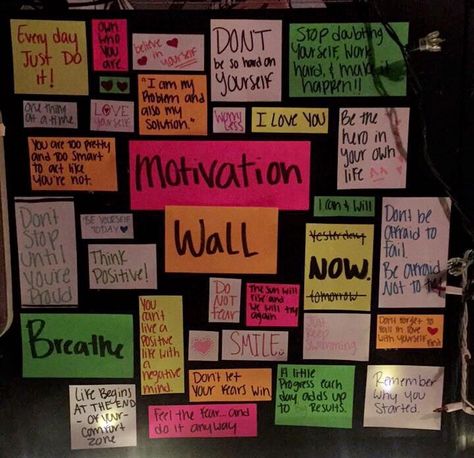 Every day
Just Do
it!
own
who
you
are
believe in
yourself
DON'T
be so hard on
yourself
Stop doubting
yourself, work
hard, & make it
happen!!
one thing
at a time
LOVE
yourself
"I am my
Problem and
also my
solution."
Worry
Less
I Love You
Be the
hero in
your own
life
You are too pretty
and too smart
to act like
You're not.
Motivation
I can & Will
Dont
Stop
until
You're
Proud
BE YOURSELF
TODAY
Think
Positive!
Wall
Yesterday
NOW.
tomorrow
Don't be
afraid to
Fail.
Be afraid
Not to
DO
NOT
fear
The sun will
rise and
we will try
again
Breathe
You
can't
live a
Positive
life with
a
negative
mind.
SMILE
Just
Keep
Swimming
Dont forget to
fall in love
with yourself
First
Life Begins
AT THE END
- OF your -
comfort
zone
Don't let
Your fears win
A little
Progress each
day adds up
to Results.
Remember
Why You
Started.
Feel the fear... and
do it anyway